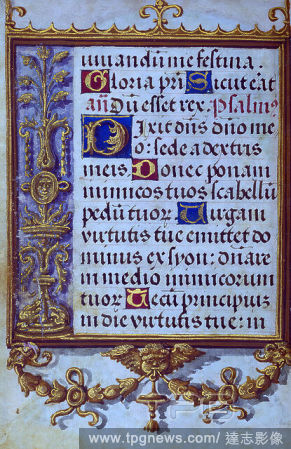 iuvandum me festina.
Gloria pri Sicut eat
an Dum esset rex. Psalmus
Dixit dns dno me
o: sede a dextris
meis Donec ponam
inimicos tuos scabellu
pedu tuor Virgam
virtutis tue emittet do
minus ex syon: dnare
in medio inimicorum
tuor Tecu principiu
in die virtutis tue: in
www.tpgnews.com/ 達志影像